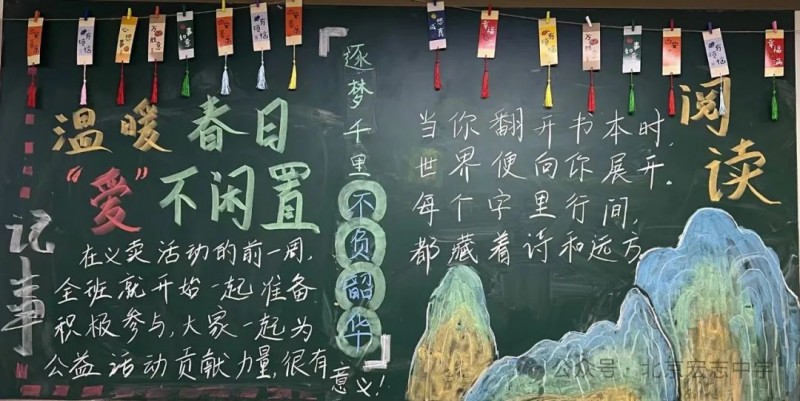 温暖春日
"爱"不闲置
记事
在义卖活动的前一周,
全班就开始一起准备
积极参与,大家一起为
公益活动贡献力量,很有
意义!
逐梦千里不负韶华
阅读
当你翻开书本时,
世界便向你展开。
每个字里行间,
都藏着诗和远方
公众号·北京宏志中学